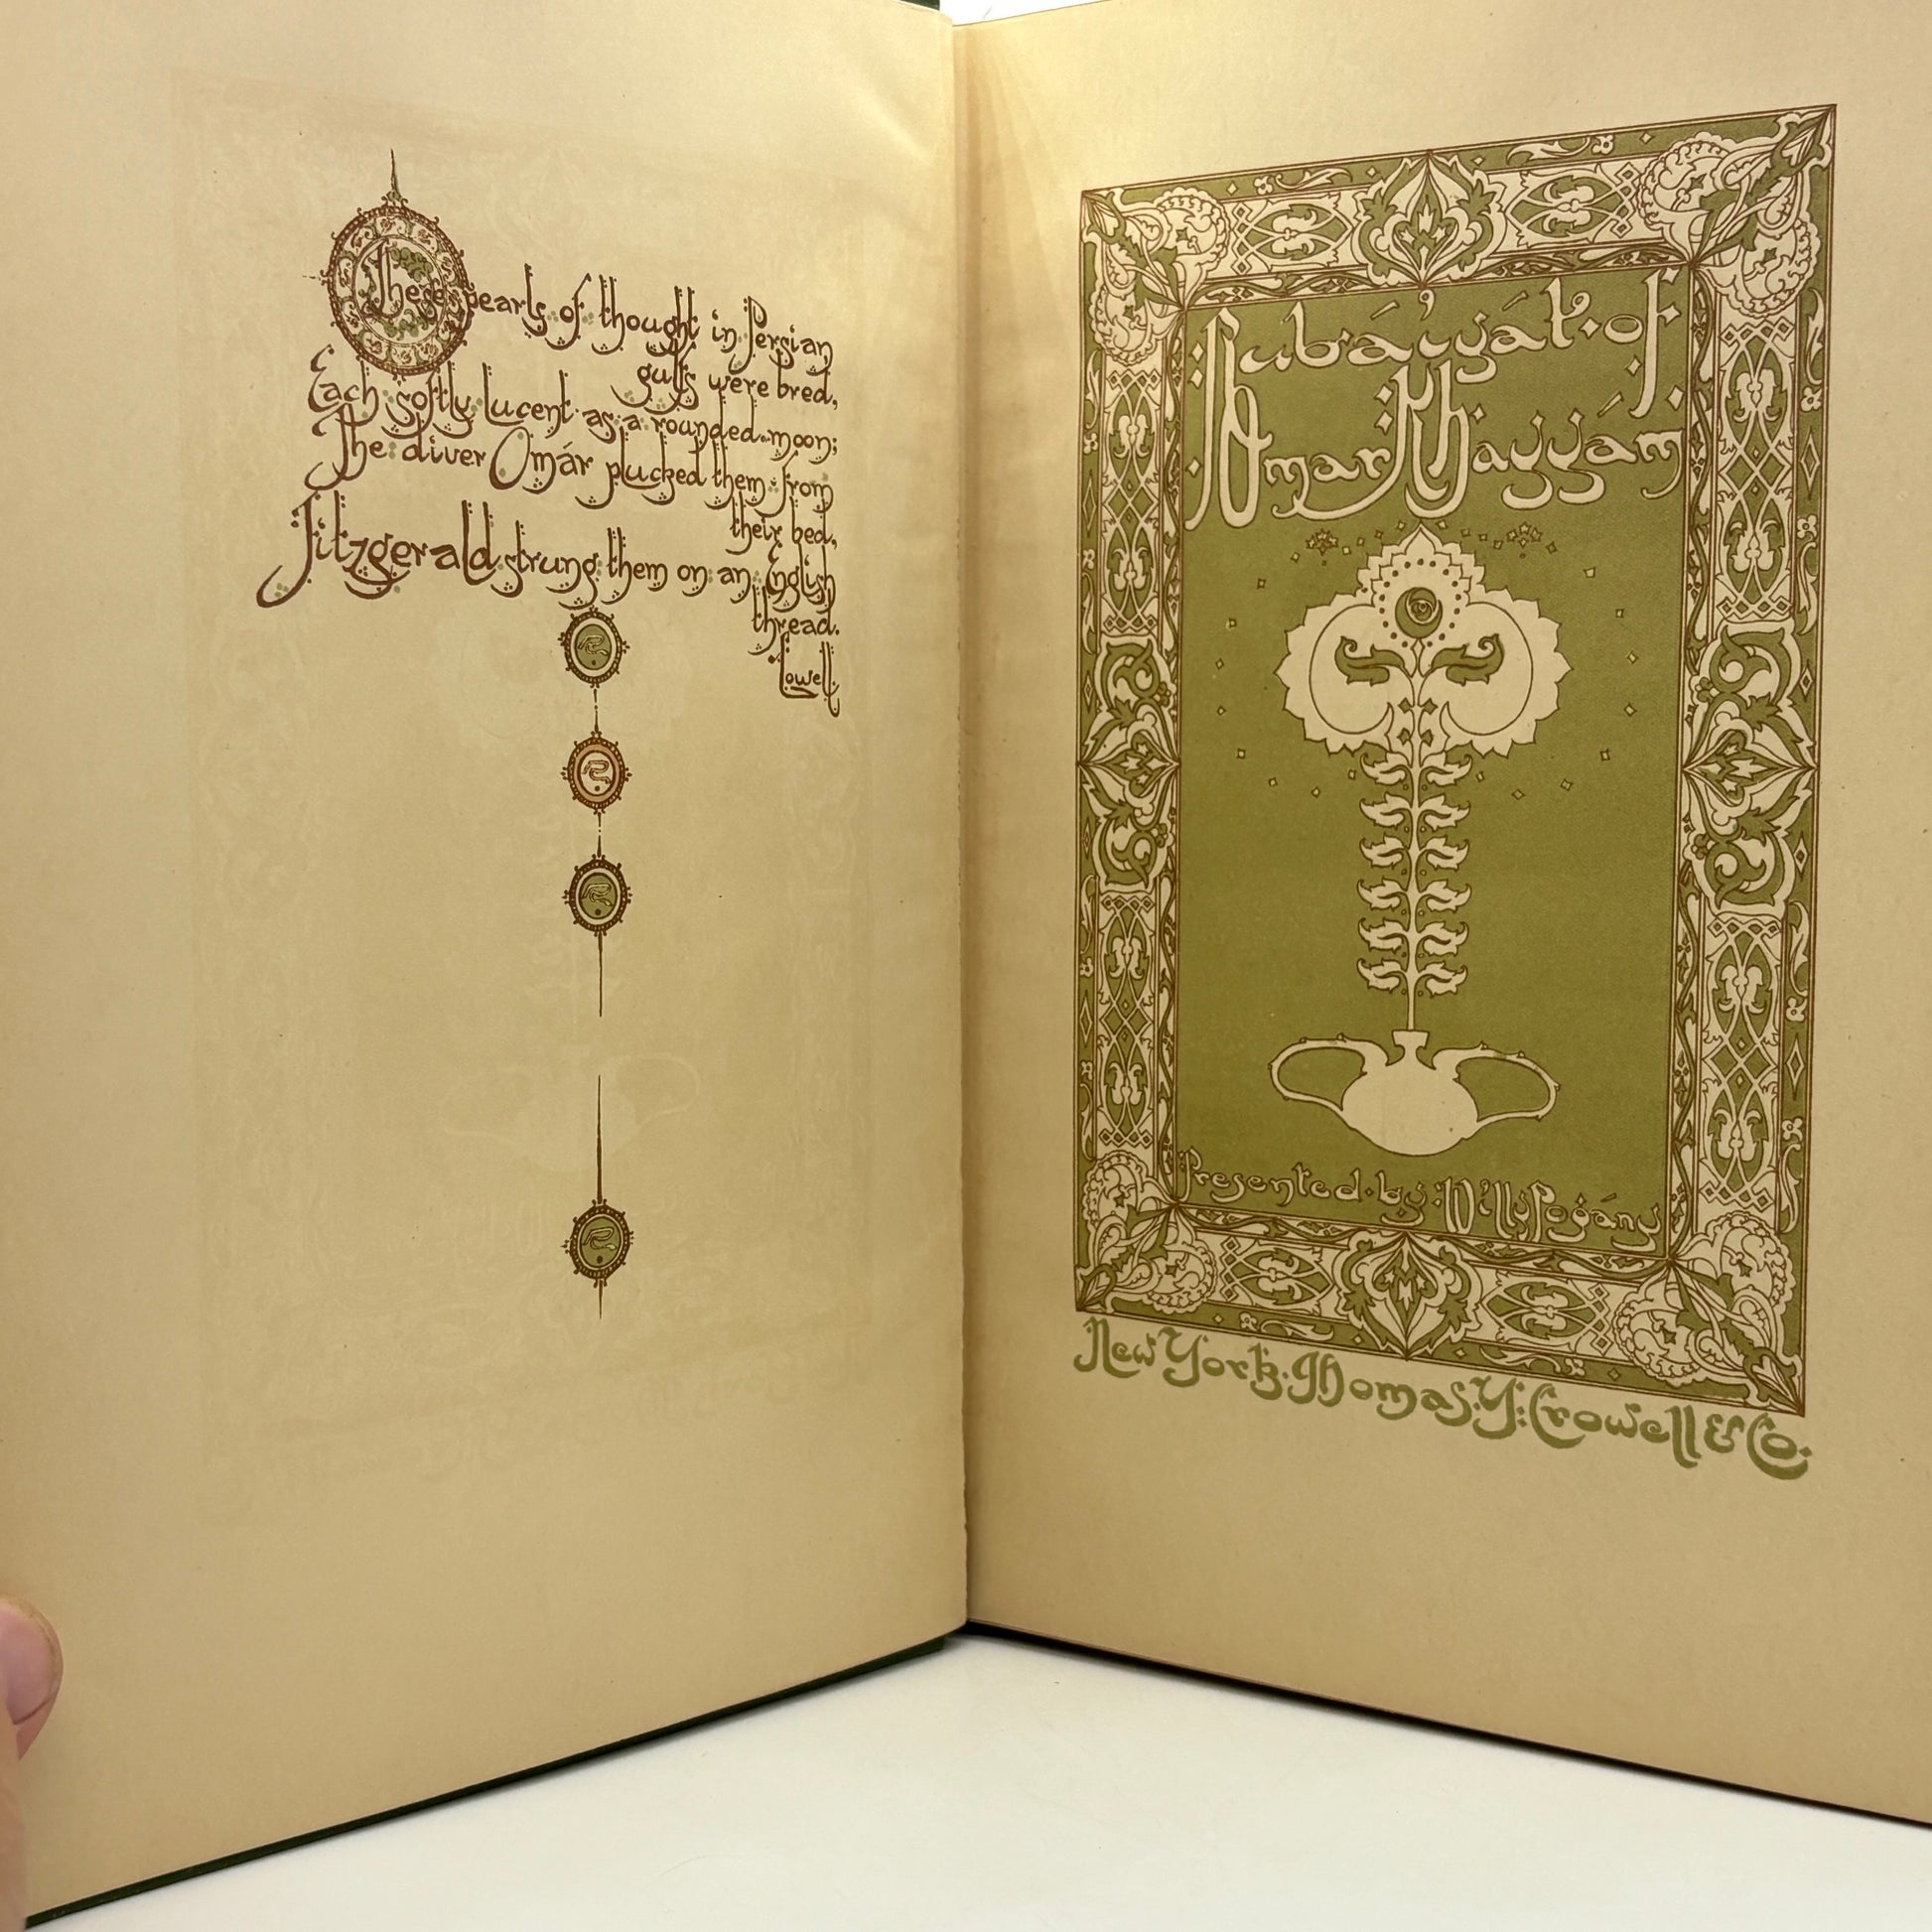 These pearls of thought in Persian
gulfs were bred,
Each softly lucent as a rounded moon;
The diver Omár plucked them from
their bed,
Fitzgerald strung them on an English
thread.
Lowell.
Rubáiyát of
Omar Khayyám
Presented by Willy Pogány
New York. Thomas. Y. Crowell & Co.